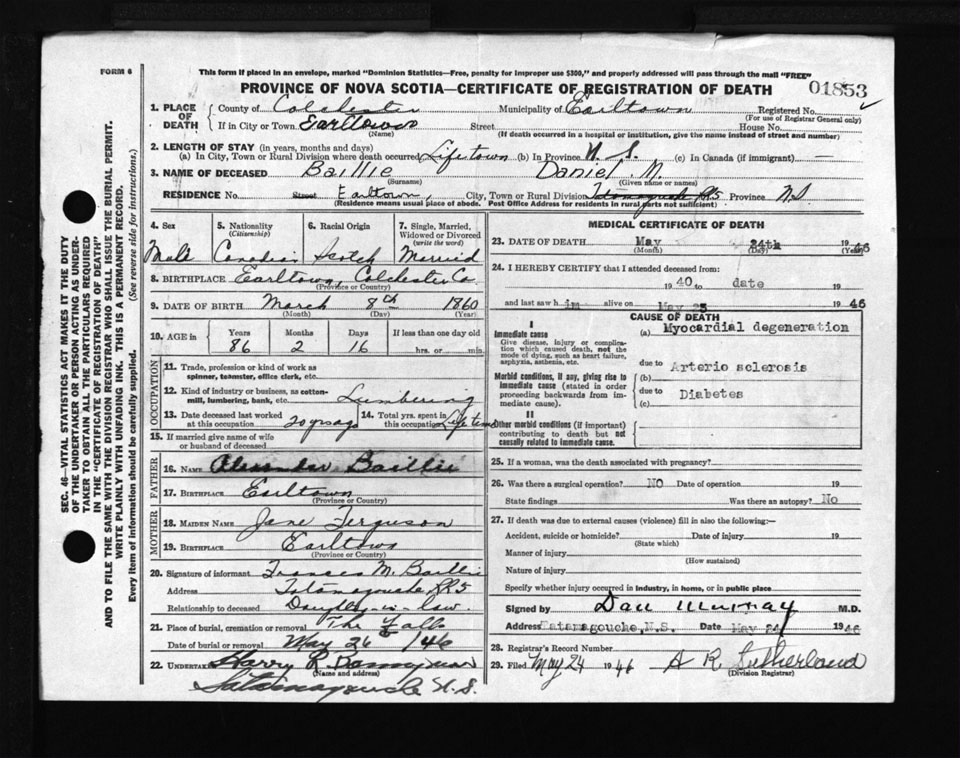 FORM 6
This form if placed in an envelope, marked "Dominion Statistics—Free, penalty for improper use $300," and properly addressed will pass through the mail "FREE"
PROVINCE OF NOVA SCOTIA—CERTIFICATE OF REGISTRATION OF DEATH
01853
1. PLACE OF DEATH
County of Colchester Municipality of Earltown Registered No.
(For use of Registrar General only)
If in City or Town Earltown Street House No.
(Name) (If death occurred in a hospital or institution, give the name instead of street and number)
2. LENGTH OF STAY (in years, months and days)
(a) In City, Town or Rural Division where death occurred (b) In Province N.S. (c) In Canada (if immigrant) —
3. NAME OF DECEASED Baillie Daniel M.
(Surname) (Given name or names)
RESIDENCE No. Street Earltown, City, Town or Rural Division Tatamagouche RR5 Province N.S
(Residence means usual place of abode. Post Office Address for residents in rural parts not sufficient)
4. Sex
Male
5. Nationality (Citizenship)
Canadian
6. Racial Origin
Scotch
7. Single, Married, Widowed or Divorced (write the word)
Married
8. BIRTHPLACE Earltown, Colchester Co.
(Province or Country)
9. DATE OF BIRTH March 8th 1860
(Month) (Day) (Year)
10. AGE in Years Months Days If less than one day old
86 2 16 hrs. or min.
OCCUPATION
11. Trade, profession or kind of work as spinner, teamster, office clerk, etc.
12. Kind of industry or business, as cotton-mill, lumbering, bank, etc. Lumbering
13. Date deceased last worked at this occupation 20 yrs ago
14. Total yrs. spent in this occupation Lifetime
15. If married give name of wife or husband of deceased
FATHER
16. NAME Alexander Baillie
17. BIRTHPLACE Earltown
(Province or Country)
MOTHER
18. MAIDEN NAME Jane Ferguson
19. BIRTHPLACE Earltown
(Province or Country)
20. Signature of informant Frances M. Baillie
Address Tatamagouche RR5
Relationship to deceased Daughter-in-law.
21. Place of burial, cremation or removal The Falls
Date of burial or removal May 26 /46
22. UNDERTAKER Harry R.
(Name and address)
Tatamagouche N.S.
MEDICAL CERTIFICATE OF DEATH
23. DATE OF DEATH May 24th 1946
(Month) (Day) (Year)
24. I HEREBY CERTIFY that I attended deceased from:
1940 to date 19
and last saw him alive on May 23 1946
CAUSE OF DEATH
I
Immediate cause
Give disease, injury or complication which caused death, not the mode of dying, such as heart failure, asphyxia, asthenia, etc.
(a) Myocardial degeneration
due to Arterio sclerosis
Morbid conditions, if any, giving rise to immediate cause (stated in order proceeding backwards from immediate cause).
(b)
due to Diabetes
(c)
II
Other morbid conditions (if important) contributing to death but not causally related to immediate cause.
25. If a woman, was the death associated with pregnancy?
26. Was there a surgical operation? NO Date of operation 19
State findings Was there an autopsy? No
27. If death was due to external causes (violence) fill in also the following:—
Accident, suicide or homicide? Date of injury 19
(State which)
Manner of injury
(How sustained)
Nature of injury
Specify whether injury occurred in industry, in home, or in public place
Signed by Dan Murray M.D.
Address Tatamagouche, N.S. Date May 24/ 1946
28. Registrar's Record Number
29. Filed May 24 1946 A R Sutherland
(Division Registrar)
SEC. 46—VITAL STATISTICS ACT MAKES IT THE DUTY
OF THE UNDERTAKER OR PERSON ACTING AS UNDER-
TAKER TO OBTAIN ALL THE PARTICULARS REQUIRED
IN THE "CERTIFICATE OF REGISTRATION OF DEATH"
AND TO FILE THE SAME WITH THE DIVISION REGISTRAR WHO SHALL ISSUE THE BURIAL PERMIT.
WRITE PLAINLY WITH UNFADING INK. THIS IS A PERMANENT RECORD.
Every item of information should be carefully supplied. (See reverse side for instructions.)